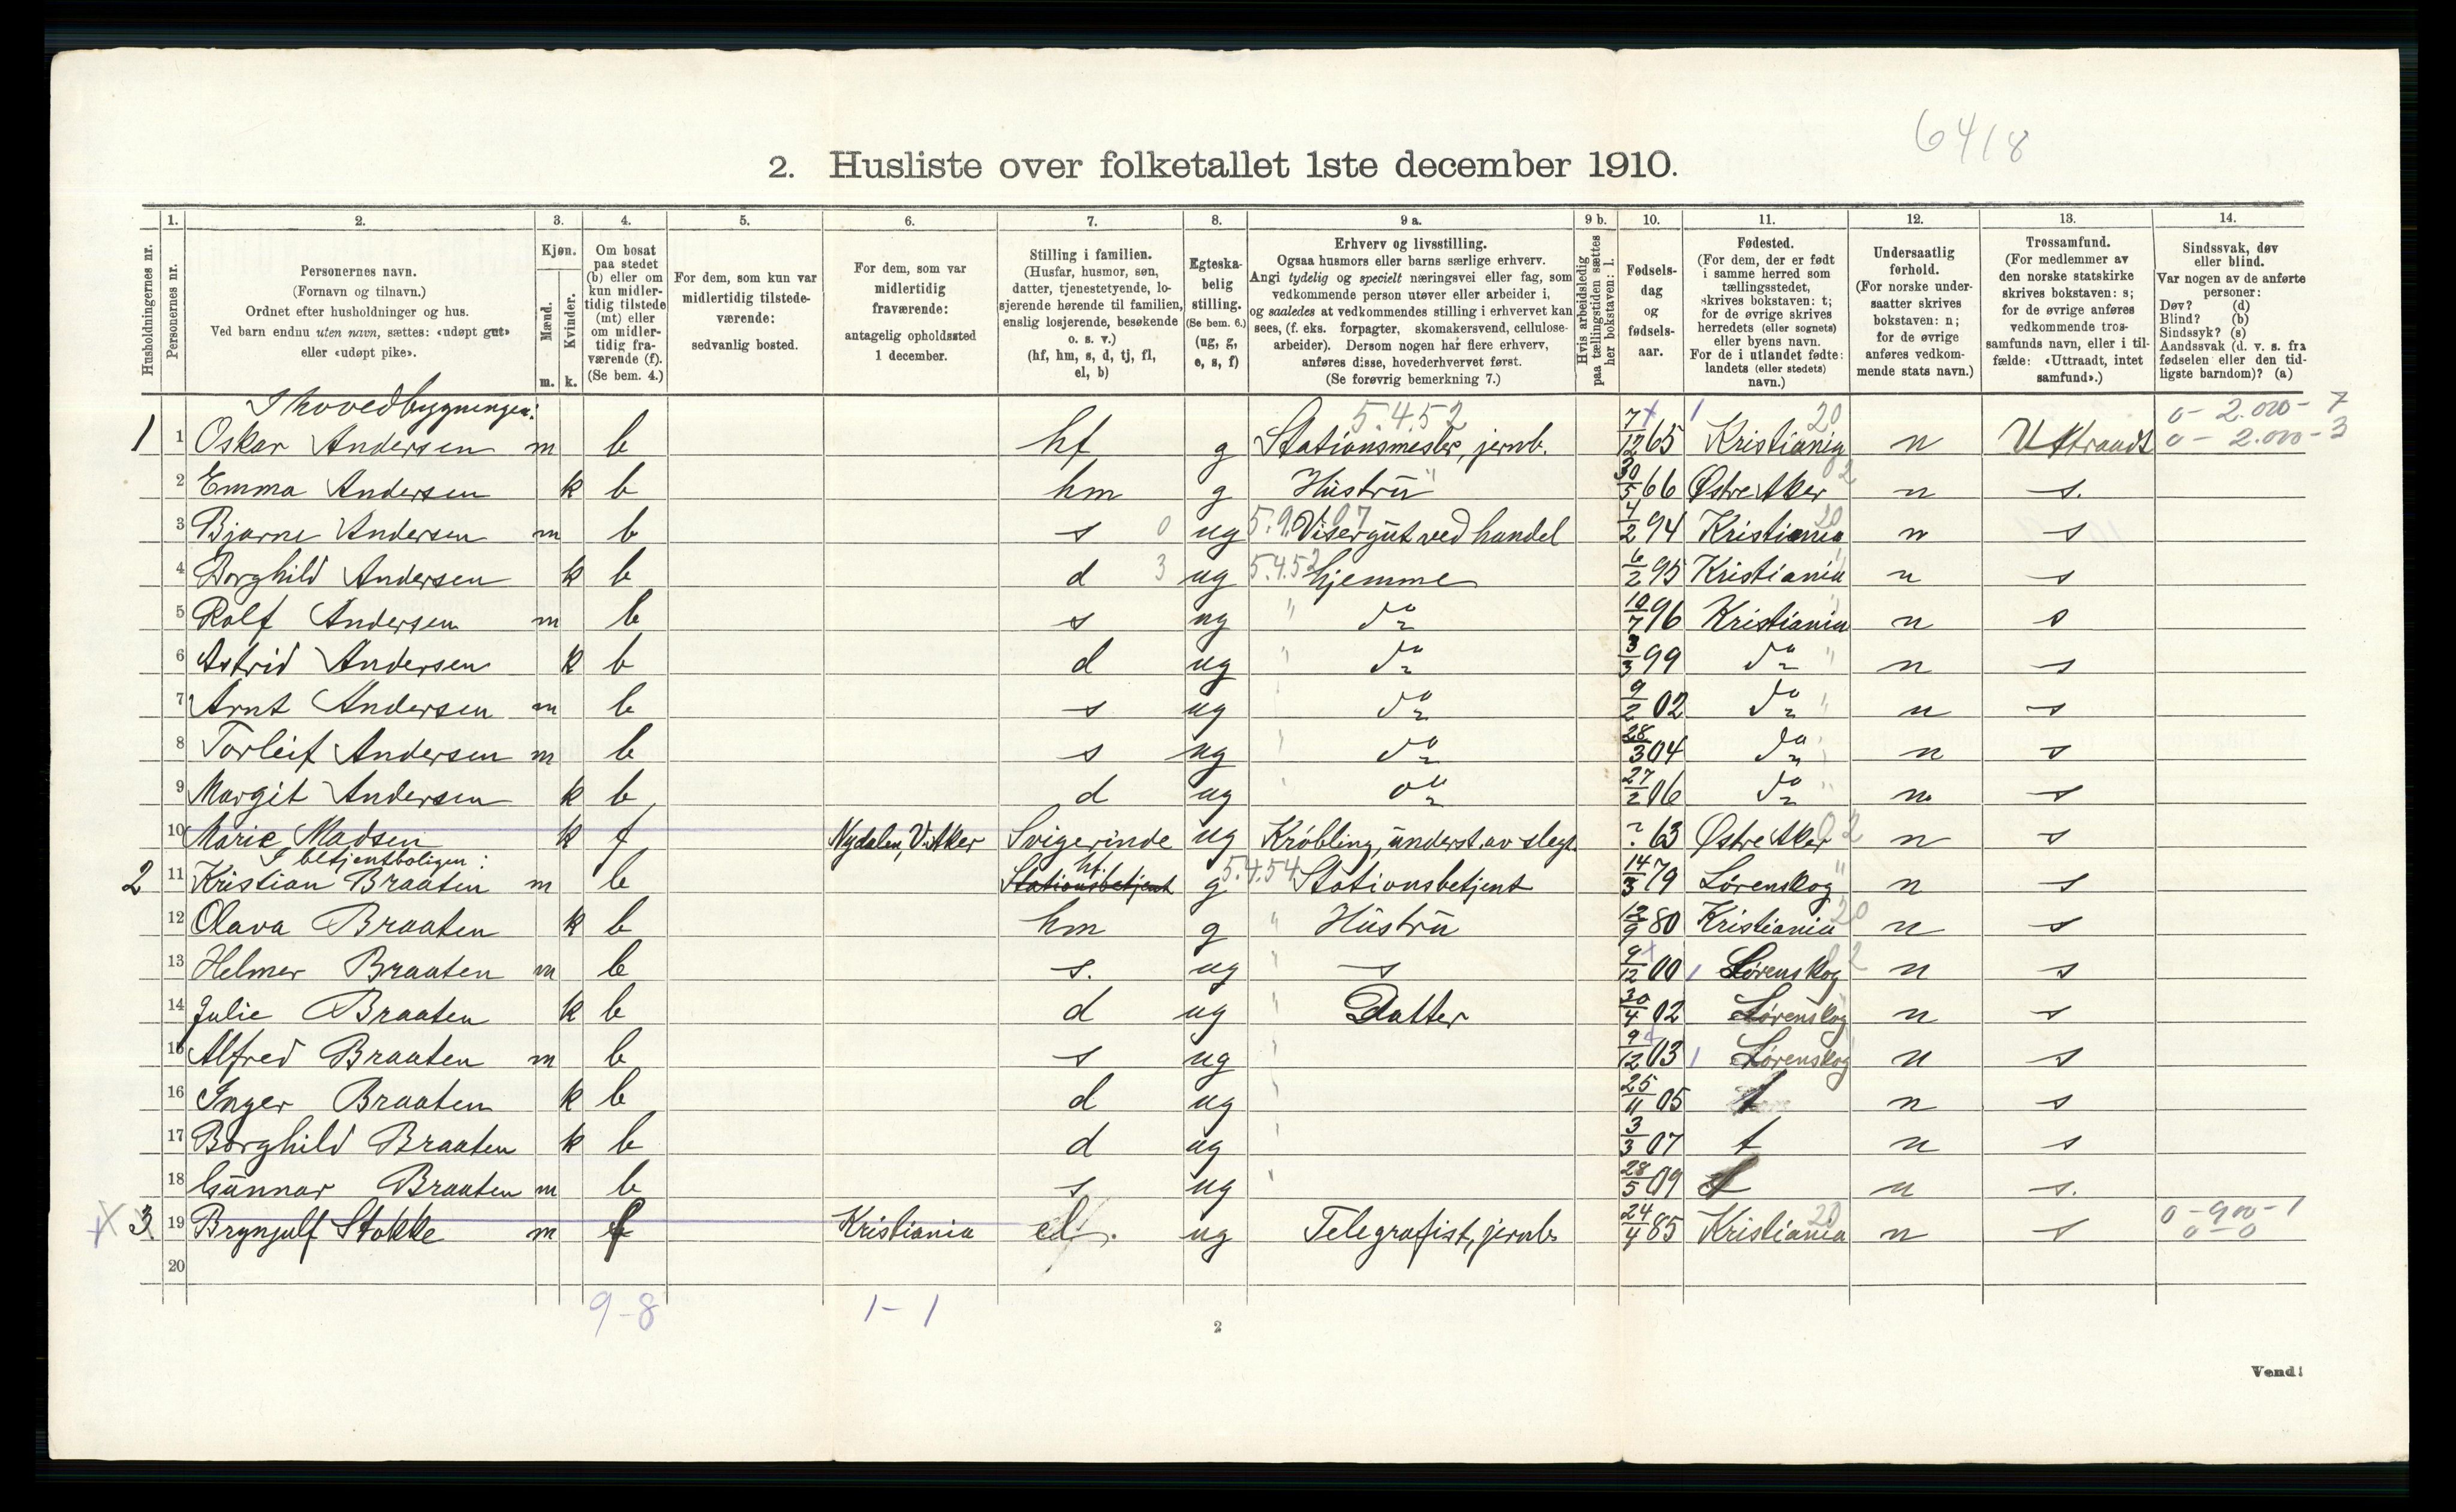 6418
2. Husliste over folketallet 1ste december 1910.
Husholdningernes nr.
1. Personernes nr.
2. Personernes navn. (Fornavn og tilnavn.) Ordnet efter husholdninger og hus. Ved barn endnu uten navn, sættes: «udøpt gut» eller «udøpt pike».
3. Kjøn. Mænd. m. Kvinder. k.
4. Om bosat paa stedet (b) eller om kun midlertidig tilstede (mt) eller om midlertidig fraværende (f). (Se bem. 4.)
5. For dem, som kun var midlertidig tilstedeværende: sedvanlig bosted.
6. For dem, som var midlertidig fraværende: antagelig opholdssted 1 december.
7. Stilling i familien. (Husfar, husmor, søn, datter, tjenestetyende, losjerende hørende til familien, enslig losjerende, besøkende o. s. v.) (hf, hm, s, d, tj, fl, el, b)
8. Egteskabelig stilling. (Se bem. 6.) (ug, g, e, s, f)
9 a. Erhverv og livsstilling. Ogsaa husmors eller barns særlige erhverv. Angi tydelig og specielt næringsvei eller fag, som vedkommende person utøver eller arbeider i, og saaledes at vedkommendes stilling i erhvervet kan sees, (f. eks. forpagter, skomakersvend, cellulosearbeider). Dersom nogen har flere erhverv, anføres disse, hovederhvervet først. (Se forøvrig bemerkning 7.)
9 b. Hvis arbeidsledig paa tællingstiden sættes her bokstaven: l.
10. Fødselsdag og fødselsaar.
11. Fødested. (For dem, der er født i samme herred som tællingsstedet, skrives bokstaven: t; for de øvrige skrives herredets (eller sognets) eller byens navn. For de i utlandet fødte: landets (eller stedets) navn.)
12. Undersaatlig forhold. (For norske undersaatter skrives bokstaven: n; for de øvrige anføres vedkommende stats navn.)
13. Trossamfund. (For medlemmer av den norske statskirke skrives bokstaven: s; for de øvrige anføres vedkommende trossamfunds navn, eller i tilfælde: «Uttraadt, intet samfund».)
14. Sindssvak, døv eller blind. Var nogen av de anførte personer: Døv? (d) Blind? (b) Sindssyk? (s) Aandssvak (d. v. s. fra fødselen eller den tidligste barndom)? (a)
I hovedbygningen: 5.4.52 0 - 2.000 - 7
1 1 Oskar Andersen m b hf g Stationsmester, jernb. 7/12 65 Kristiania 20 n Uttraadt 0 - 2.000 - 3
2 Emma Andersen k b hm g Hustru " 30/5 66 Østre Aker 02 n s.
3 Bjarne Andersen m b s 0 ug 5.9.07 Visergut ved handel 4/2 94 Kristiania 20 n s
4 Borghild Andersen k b d 3 ug 5.4.52 hjemme 6/2 95 Kristiania " n s
5 Rolf Andersen m b s ug " do 10/7 96 Kristiania " n s
6 Astrid Andersen k b d ug " do 3/3 99 do " n s
7 Arnt Andersen m b s ug " do 9/2 02 do " n s
8 Torleif Andersen m b s ug " do 28/3 04 do " n s
9 Margit Andersen k b d ug " do 27/2 06 do " n s
10 Marie Madsen k f Nydalen, V. Aker Svigerinde ug Krøbling, underst. av slegt. ? 63 Østre Aker 02 n s
I betjentboligen:
2 11 Kristian Braaten m b Stationsbetjent hf. g 5.4.54 Stationsbetjent 14/3 79 Lørenskog " n s
12 Olava Braaten k b hm g " Hustru 12/9 80 Kristiania 20 n s
13 Helmer Braaten m b s. ug " s 9/12 00 1 Lørenskog 02 n s
14 Julie Braaten k b d ug " Datter 30/4 02 Lørenskog n s
15 Alfred Braaten m b s ug " 9/12 03 1 Lørenskog n s
16 Inger Braaten k b d ug " 25/11 05 t n s
17 Borghild Braaten k b d ug " 3/3 07 t n s
18 Gunnar Braaten m b s ug " 28/5 09 t n s.
X 3 19 Brynjulf Stokke m f Kristiania el. ug Telegrafist, jernb. 24/4 85 Kristiania 20 n s 0 - 900 - 1 0 - 0
20
9 - 8 1 - 1
2
Vend!